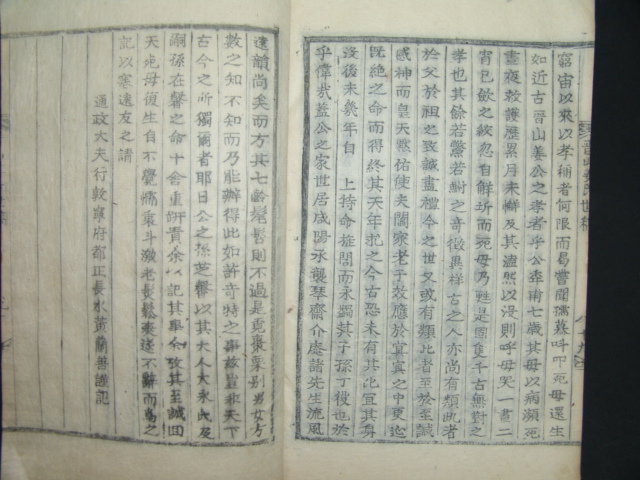 窮宙以來以孝稱者何限而易嘗聞孺慕呼叩死母還生
如近古晉山姜公之孝者乎公年甫七歲其母以病瀕死
晝夜救護歷累月未解及其溘然以沒則呼母哭一晝二
宵已斂之絞忽自解坼而死母乃甦是固隻千古無對之
孝也其餘若鱉若之奇徵異祥古之人亦尚有類此者
於父於祖之誠盡禮今之世又或有類此者至於至誠
感神而皇天默佑使夫闔家老于效應於冥冥之中更迨
既絶之命而得終其天年抱之今古恐未有其比宜其身
沒後未幾年自 上特命旌閭而永蠲其子孫丁役也於
乎偉哉盖公之家世居咸陽承襲琴齋介庵諸先生流風
遺韻尚矣而方其七齡髫髻則不過是覓棗栗別男女方
數之知不知而乃能辦得此如許奇特之事故豈非天下
古今之所獨爾者耶日公之孫芝馨以其大人大永氏及
嗣孫在馨之命十舍重趼責余以記其畢余攷其至誠回
天死母復生自不覺 乘斗 老 鬆 遂不辭而爲之
記以塞遠友之請
通政大夫行敦寧府都正長水黃蘭善謹記